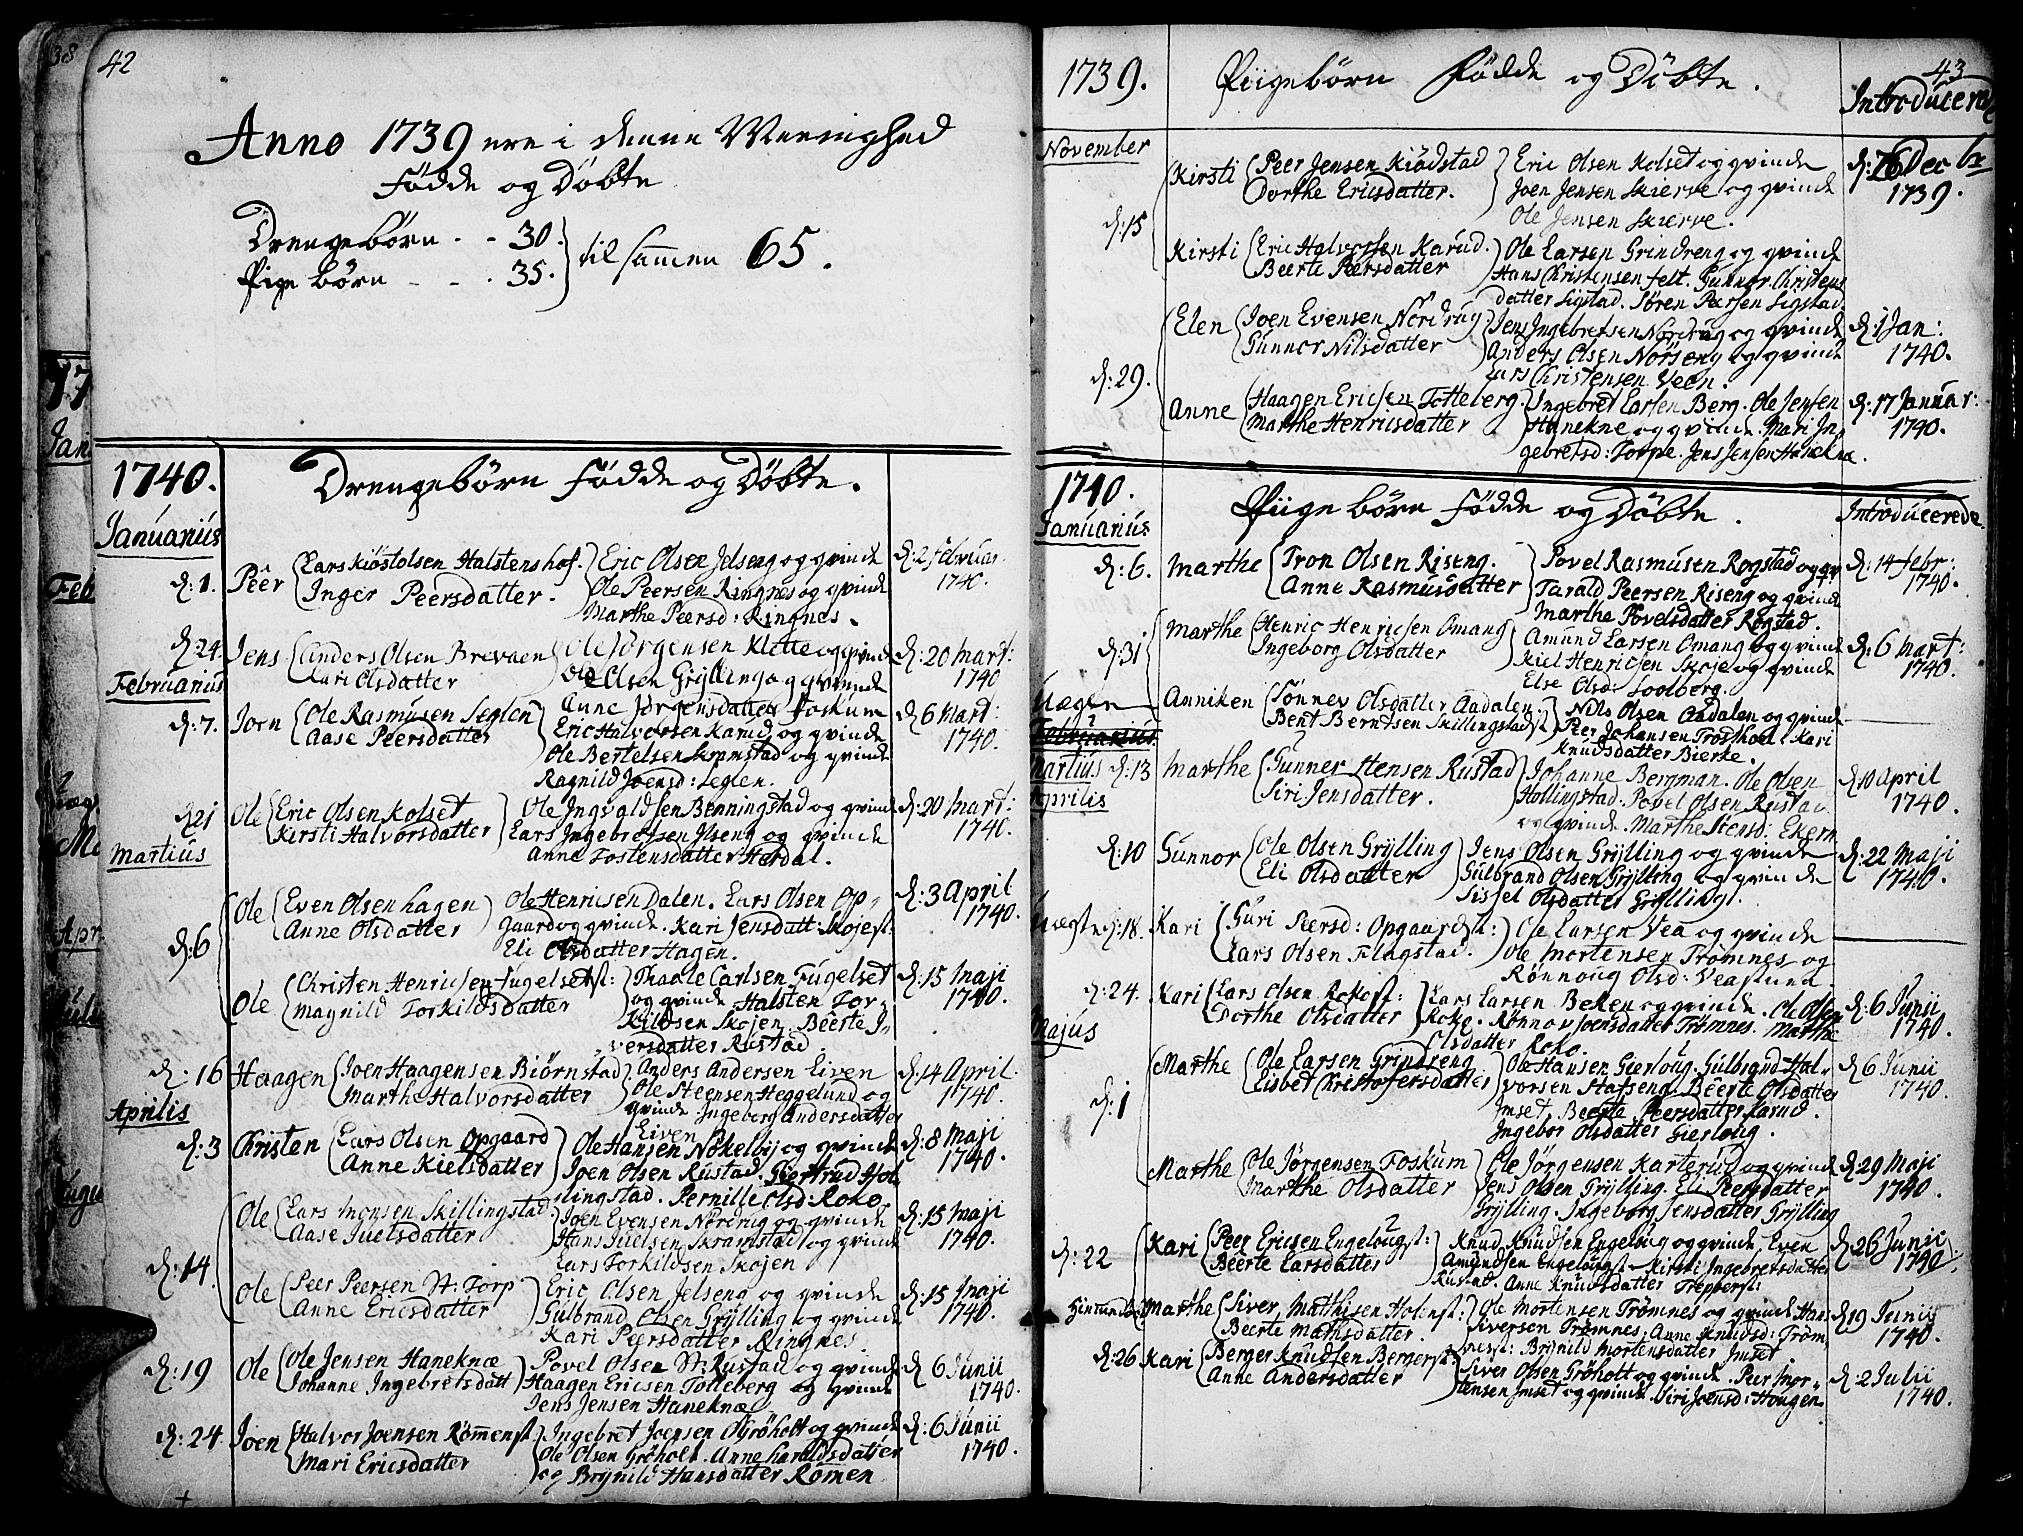 38
42
Anno 1739 ere i denne Meenighed
Fødde og Døbte
Drengebørn . - 30.
Pige børn - - . 35.
til sammen 65.
1740.
Drengebørn Fødde og Døbte.
Januarius
d: 1. Peêr
Lars Kiøstolsen Halstenshof.
Inger Peersdatter.
Eric Olsen Jelseng og qvinde
Ole Peersen Ringnes og qvinde
Marthe Peersd: Ringnes.
d: 2 Februar.
1740.
d: 24. Jens
Anders Olsen Brevaen
Kari Olsdatter
Ole Jørgensen Klette og qvinde
Ole Olsen Grÿlling og qvinde
Anne Jørgensdatter Foskum
d: 20 Mart:
1740
Februarius
d: 7. Joen
Ole Rasmusen Seglen
Aase Peersdatter
Eric Halvorsen Karud og qvinde
Ole Bertelsen Skramstad og qvinde
Ragnild Joensd: Seglen.
d: 6 Mart:
1740.
d: 21 Ole
Eric Olsen Kolset
Kirsti Halvorsdatter
Ole Ingvaldsen Benningstad og qvinde
Lars Ingebretsen Ilseng og qvinde
Anne Tostensdatter Herdal.
d: 20 Mart:
1740.
Martius
d: 6
Ole
Even Olsen hagen
Anne Olsdatter
Ole Henricsen Dalen. Lars Olsen Op-
gaard og qvinde. Kari Jensdatt: Skojest.
Eli Olsdatter Hagen.
d: 3 April
1740.
Ole
Christen Henricsen Fugelsetst:
Magnild Torkildsdatter
Thaale Carlsen Fugelset
og qvinde Halsten Tor-
kildsen Skojen. Beêrte I-
versdatter Rustad.
d: 15 Maji
1740.
d: 16 Haagen
Joen Haagensen Biørnstad
Marthe Halvorsdatter
Anders Andersen Liven
Ole Steensen Heggelund og
qvinde. Ingeborg Andersdatter
Liven
d: 14 April.
1740.
Aprilis
d: 3 Christen
Lars Olsen Opgaard
Anne Kielsdatter
Ole Hansen Nøkelbÿ og qvinde
Joen Olsen Rustad. Giertrud Hol
lingstad. Pernille Olsd: Roko
d: 8 Maji
1740.
d: 14.
Ole
Lars Monsen Skillingstad.
Aase Juelsdatter
Joen Evensen Nordrug og qvinde
Hans Juelsen Skramstad og qvinde
Lars Torkildsen Skojen
d: 15 Maji
1740.
Ole
Peer Peersen N: Torp
Anne Ericsdatter
Eric Olsen Jelseng og qvinde
Gulbrand Olsen Grÿlling og qvinde
Kari Peersdatter Ringnes.
d: 15 Maji
1740.
d: 19 Ole
Ole Jensen Haneknæ
Johanne Ingebretsdatt
Povel Olsen N: Rustad og qvinde
Haagen Ericsen Totteberg og qvinde
Jens Jensen Haneknæ
d: 6 Junii
1740.
d: 24. Joen
Halvor Joensen Rømenst
Mari Ericsdatter
Ingebret Joensen Grøholt og qvinde
Ole Olsen Grøholt. Anne Haraldsdatter
og Brÿnild Hansdatter Rømen
d: 6 Junii
1740.
43
1739.
Piigebørn Fødde og Døbte.
Introducerede
November
d: 15
Kirsti
Peer Jensen Kiødstad
Dorthe Ericsdatter.
Eric Olsen Kolset og qvinde
Joen Jensen Skierve og qvinde
Ole Jensen Skierve.
Decbr
1739.
Kirsti
Eric Halvorsen Karud.
Beerte Peersdatter
Ole Larsen Grindreng og qvinde
Hans Christensen felt. Gunnor Christens
datter Sigstad. Søren Pæersen Sigstad
d: 29.
Elen
Joen Evensen Nordrug
Gunnor Nilsdatter
Jens Ingebretsen Nordrug og qvinde
Anders Olsen Norseng og qvinde
Lars Christensen Veen.
d: 1 Jan:
1740.
Anne
Haagen Ericsen Totteberg.
Marthe Henricsdatter
Ingebret Larsen Berg. Ole Jensen
Hanekne og qvinde. Mari In-
gebretsd: Torpe. Jens Jensen Hanekne.
d: 17 Januar:
1740.
1740.
Piige børn Fødde og Døbte.
Introducerede
Januarius
d: 6. Marthe
Tron Olsen Riseng.
Anne Rasmusdatter
Povel Rasmusen Rogstad og qv
Tarald Peersen Riseng og qvinde
Marthe Povelsdatter Rogstad.
d: 14 febr:
1740.
d: 31
Marthe
Henric Henricsen Omang
Ingeborg Olsdatter
Amund Larsen Omang og qvinde
Kiel Henricsen Skoje og qvinde
Else Olsd: Loolberg.
d: 6 Mart:
1740.
Uægte
Anniken
Tønnev Olsdatter Aadalen.
Bent Berntsen Skillingstadst
Nils Olsen Aadalen og qvinde
Peer Johansen Trosthoel. Kari
Knudsdatter Bierke.
Februarius
Martius d: 13 Marthe
Gunner Stensen Rustad
Siri Jensdatter.
Johanne Bergman. Ole Olsen
Hollingstad. Povel Olsen Rustad
og qvinde. Marthe Stensd. Ekern
d: 10 April
1740.
Aprilis
d: 10 Gunnor
Ole Olsen Grÿlling
Eli Olsdatter
Jens Olsen Grÿlling og qvinde
Gulbrand Olsen Grÿlling og qvinde
Sissel Olsdatter Grÿlling.
d: 22 Maji
1740.
Uægte d: 18. Kari
Guri Peersd: Opgaardst:
Lars Olsen Flagstad.
Ole Larsen Vea og qvinde
Ole Mortensen Trømnes og
Rønnoug Olsd: Veastuna.
d: 24. Kari
Lars Olsen Rokost:
Dorthe Olsdatter
Lars Larsen Beken og qvinde. Ole Olsen
Roko. Rønnov Joensdatter Trømnes. Marthe
Olsdatter Roko.
d: 6 Junii
1740.
Majus
d: 1
Marthe
Ole Larsen Grindreng
Lisbet Christofersdatter
Ole Hansen Gierloug. Gulbrand Hal-
vorsen Stafseng. Beêrte Olsdatter
Imset. Beerte Peersdatter Karud.
Ingebor Olsdatter Gierloug.
d: 6 Junii
1740.
Marthe
Ole Jørgensen Foskum
Marthe Olsdatter
Ole Jørgensen Karterud og qvinde
Jens Olsen Grÿlling. Eli Peersdatter
Grÿlling. Ingeborg Jensdatter Grÿlling
d: 29 Maji
1740.
d: 22
Kari
Peer Ericsen Engelougst:
Beêrte Larsdatter
Knud Knudsen Engeloug og qvinde. Even
Amundsen Engelougst. Kirsti Ingebretsdatter
Rustad. Anne Knudsdatter Trepperst:
d: 26 Junii
1740.
Marthe
Siver Mathisen Holenst:
Beerte Mathsdatter.
Ole Mortensen Trømnes og qvinde Han
Siversen Trømnes. Anne Knudsd: Trøm
nest: Brÿnild Mortensdatter Imset
d: 19 Junii
1740.
d: 26 Kari
Berger Knudsen Bergerst:
Anne Andersdatter
Siver Olsen Grøholt og qvinde. Peer Mor-
tensen Imset og qvinde. Siri Joensd: Hougen
d: 2 Julii
1740.